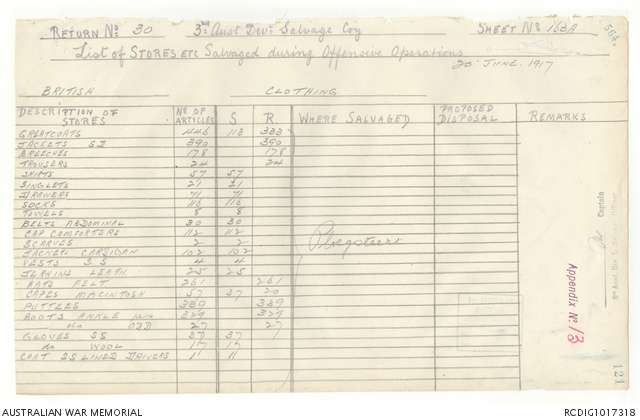 RETURN No 30 3rd Aust Divn Salvage Coy SHEET No 163A
List of STORES ETC Salvaged during Offensive Operations
20 JUNE. 1917
BRITISH CLOTHING
DESCRIPTION OF STORES No OF ARTICLES S R WHERE SALVAGED PROPOSED DISPOSAL REMARKS
GREATCOATS 446 113 333
JACKETS S.D 390 390
BREECHES 178 178
TROUSERS 24 24
SHIRTS 57 57
SINGLETS 21 21
DRAWERS 71 71
SOCKS 116 116
TOWELS 8 8
BELTS ABDOMINAL 30 30
CAP COMFORTERS 112 112
SCARVES 2 2
JACKETS CARDIGAN 102 102
VESTS S S 4 4
JERKINS LEATH 25 25
HATS FELT 261 261
CAPES MACINTOSH 57 37 20
PUTTEES 389 389
BOOTS ANKLE 329 329
do 27 27
GLOVES S S 37 37
do WOOL 17 17
COAT S S LINED DRIVERS 1 1
Ploegsteert
Captain
Appendix No 13
121
AUSTRALIAN WAR MEMORIAL RCDIG1017318